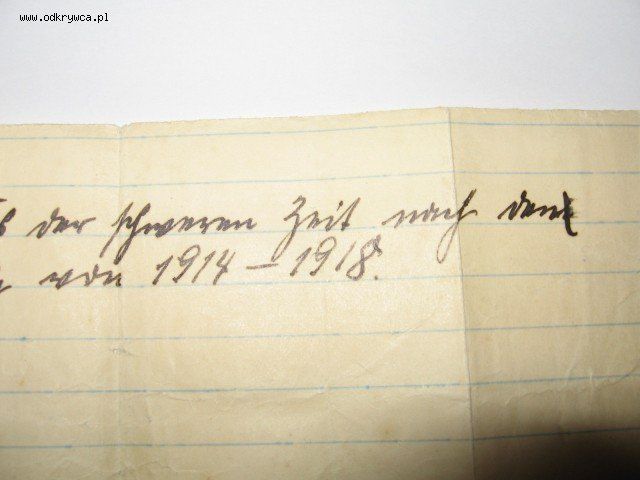 www.odkrywca.pl
der schweren Zeit nach dem
von 1914 – 1918.